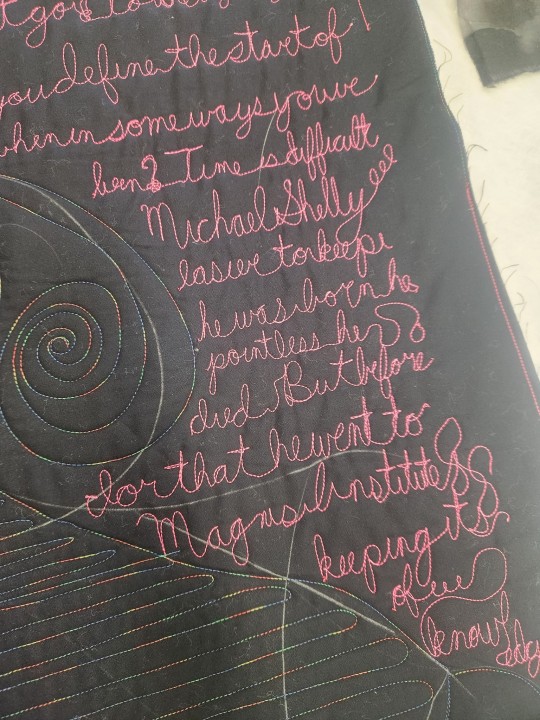 you define the start of
when in some ways you've
been? Time is difficult
Michael Shelly
easier to keep
he was born he
pointless he
died. But before
for that he went to
Magnus Institute
keeping its
of
knowl
edge